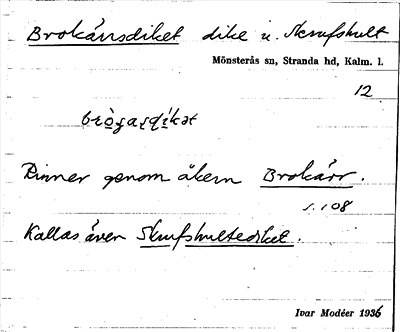 Brokärrsdiket dike u. Skrufshult
Mönsterås sn, Stranda hd, Kalm. l.
12
Rinner genom åkern Brokärr.
s. 108
Kallas även Skrufshultediket.
Ivar Modéer 1936